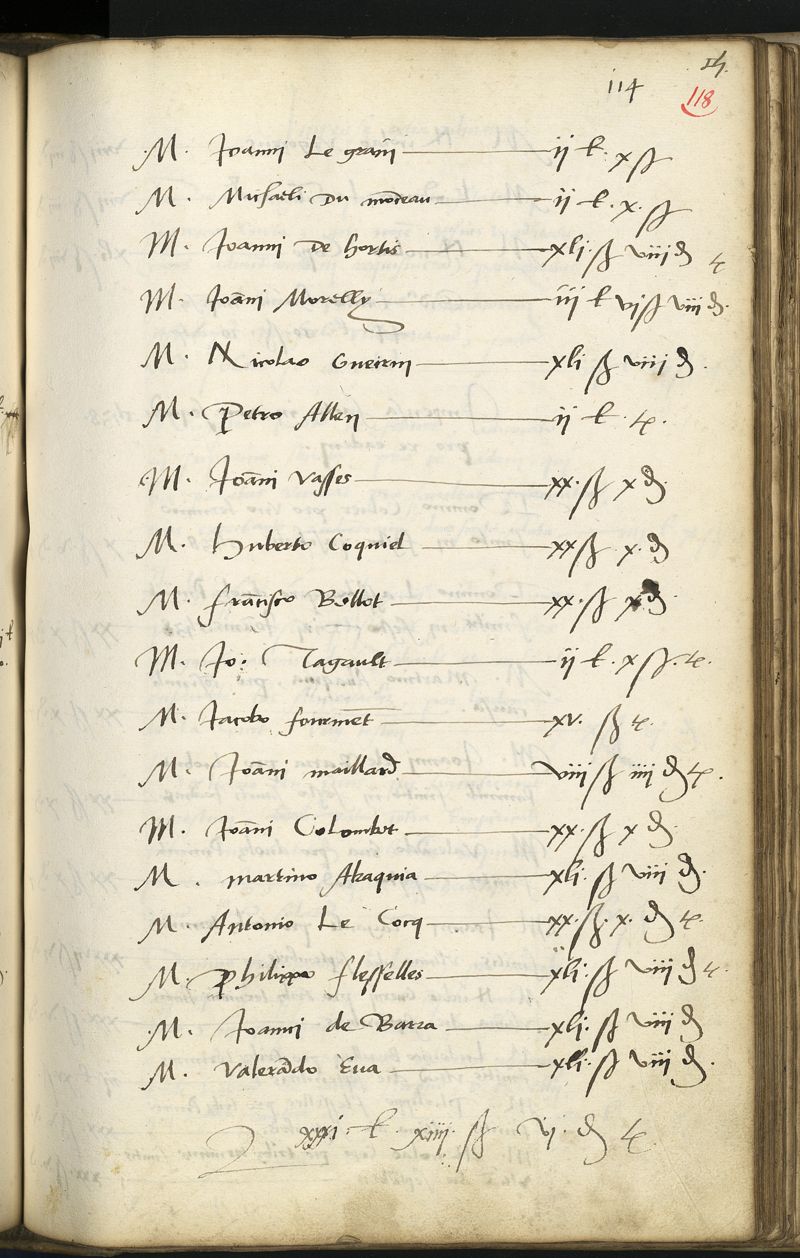 114
118
M. Joanni Le grain ii l. x ß
M. Michaeli Du monceau ii l. x. ß
M. Joanni De hortis xli. ß viii d
M. Joāni Morelly iii l vi ß viii d.
M. Nicolao Gueirin xli ß viii d.
M. Petro Allen ii l.
M. Joāni Vasses xx. ß x d
M. Huberto Coquiel xx ß x. d
M. francisco Bellot xx. ß x d
M. Jo: Tagault ii l. x ß.
M. Jacobo fourmēt xv. ß
M. Joāni maillard viii ß iiii d
M. Joāni Colombot xx. ß x d
M. martino Akaquia xli. ß viii d.
M. Antonio Le Cocq xx. ß. x. d
M. philippo flesselles xli. ß viii d
M. Joanni de Barra xli. ß viii d
M. Valerādo Eua xli. ß viii d.
xxxi. l. xiiii. ß vi. d